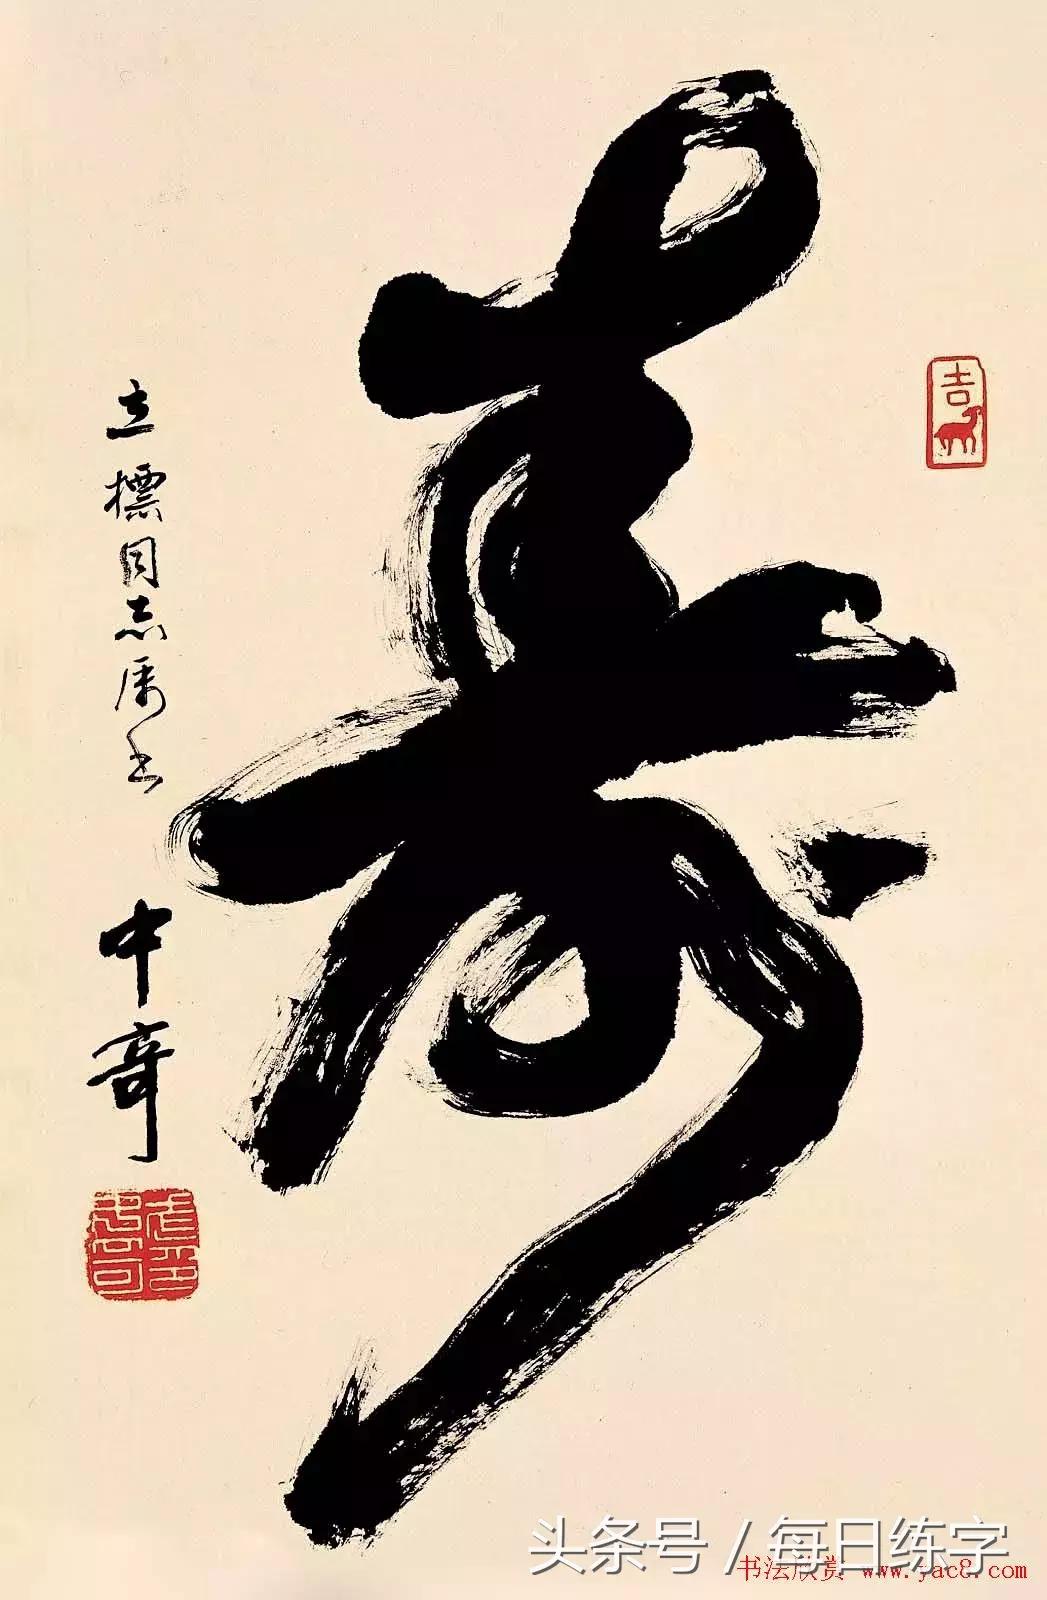 寿
吉
立標同志属书
中奇
头条号 / 每日练字
书法欣赏 www.yac8.com